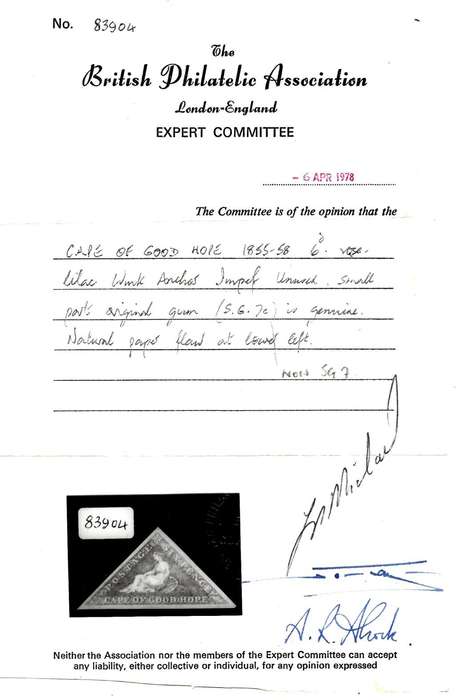 No. 83904
The
British Philatelic Association
London-England
EXPERT COMMITTEE
- 6 APR 1978
The Committee is of the opinion that the
CAPE OF GOOD HOPE 1855-58 6d rose-
lilac Wmk Anchor Imperf Unused. Small
part original gum (S.G. 7c) is genuine.
Natural paper flaw at lower left.
NOW SG 7
83904
POSTAGE SIX PENCE
CAPE OF GOOD HOPE
Neither the Association nor the members of the Expert Committee can accept
any liability, either collective or individual, for any opinion expressed